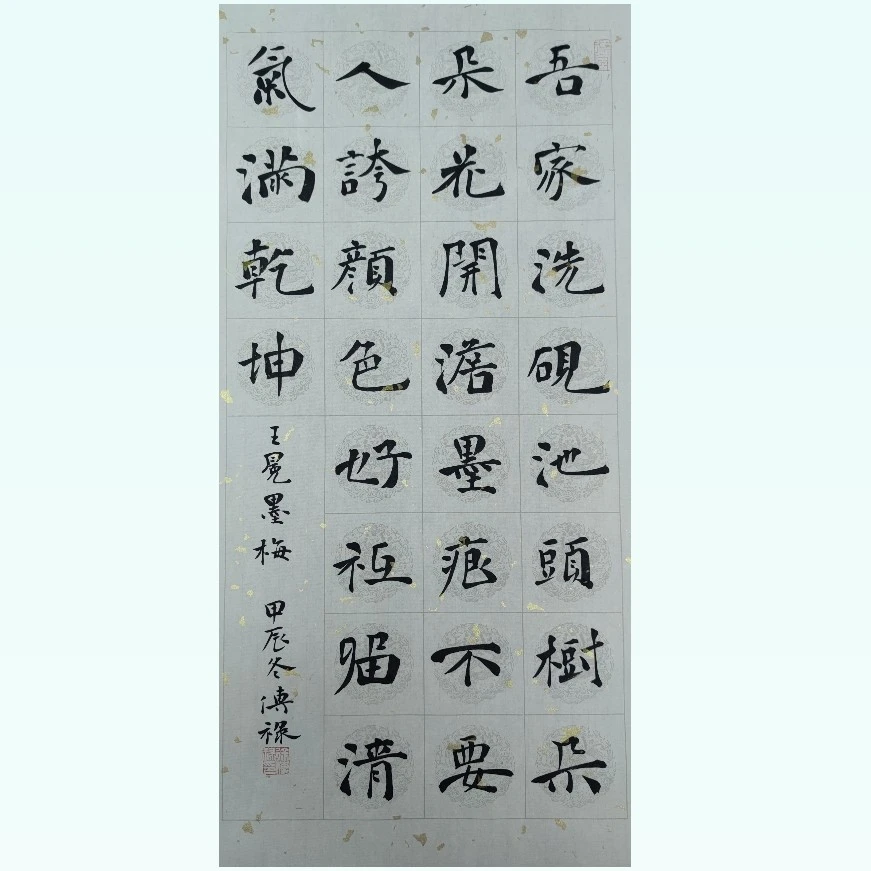 吾家洗硯池頭樹朵
朵花開澹墨痕不要
人誇顔色好祇留清
氣滿乾坤
王冕墨梅 甲辰冬傅祿